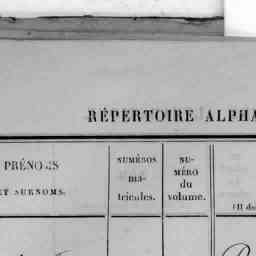 RÉPERTOIRE ALPHA
PRÉNOMS
ET SURNOMS.
NUMÉROS
ma-
tricules.
NU-
MÉRO
du
volume.